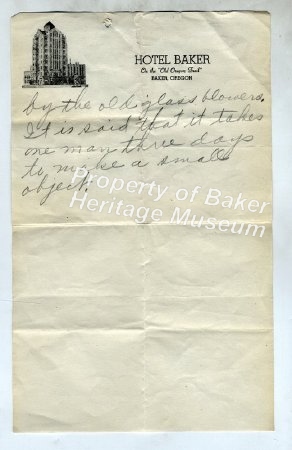 HOTEL BAKER
On the "Old Oregon Trail"
BAKER, OREGON
by the old glass blowers.
It is said that it takes
one man three days
to make a small
object.
Property of Baker
Heritage Museum